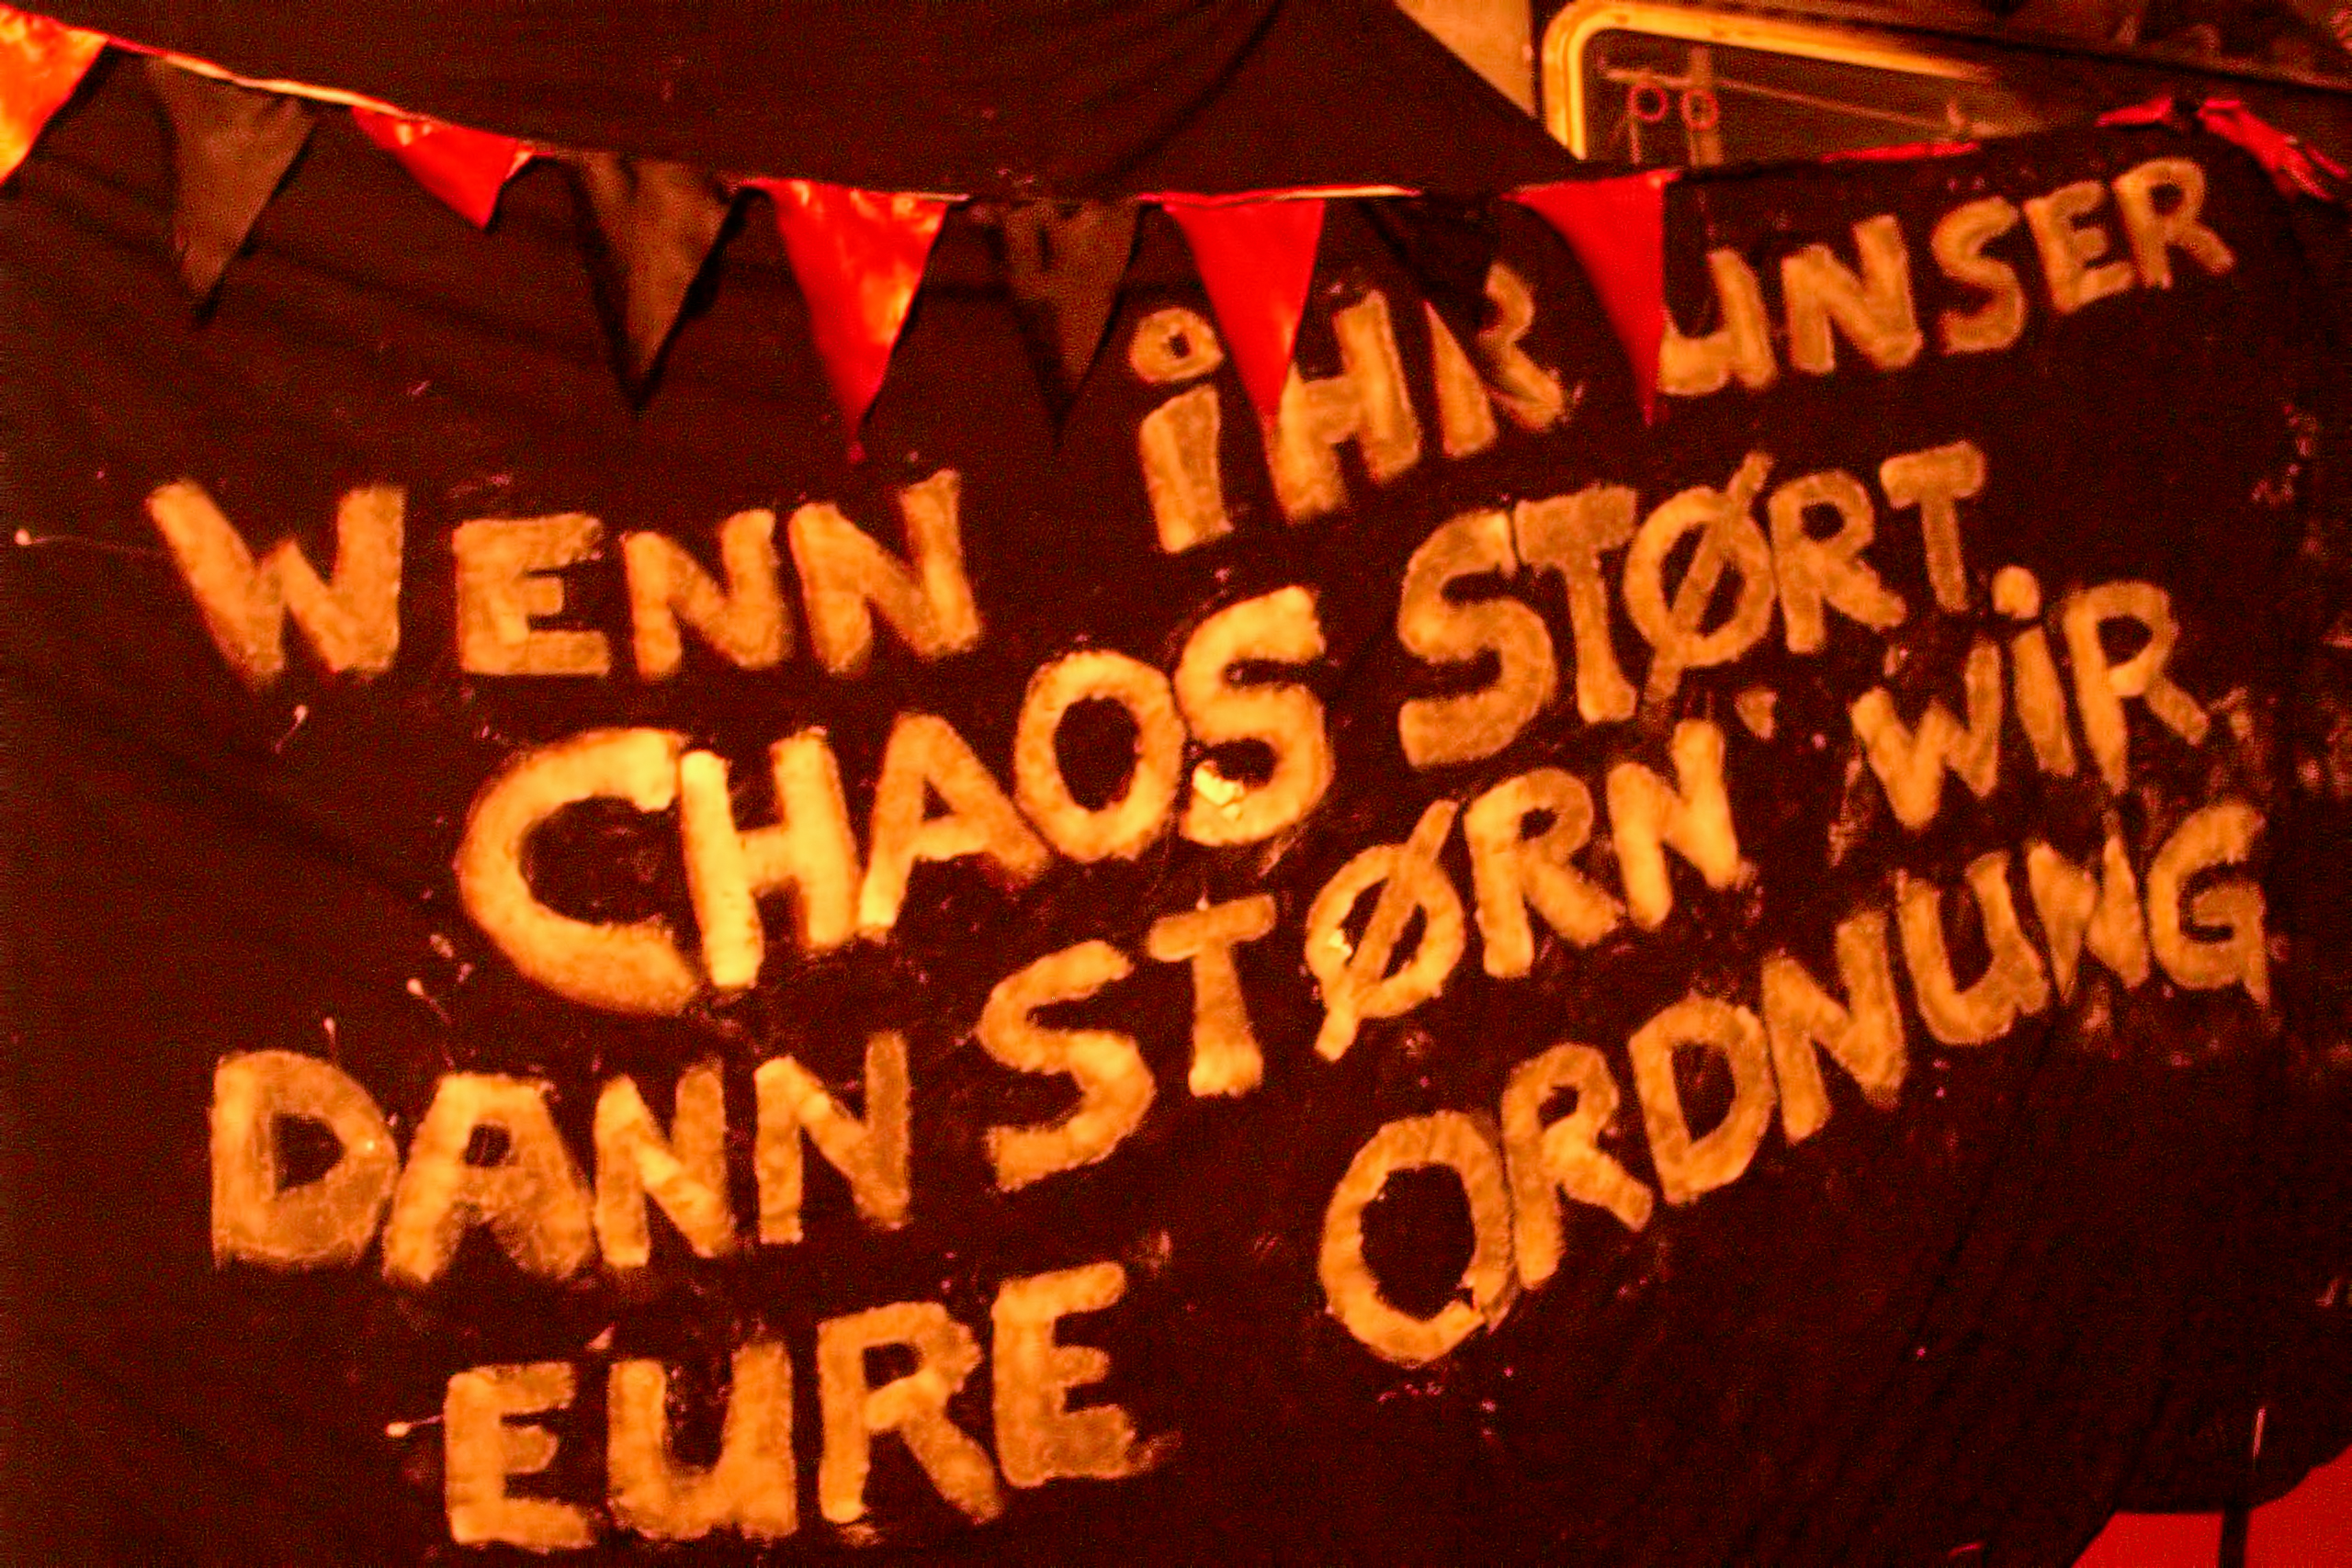 WENN iHR UNSER
CHAOS STØRT
DANN STØRN WiR
EURE ORDNUNG